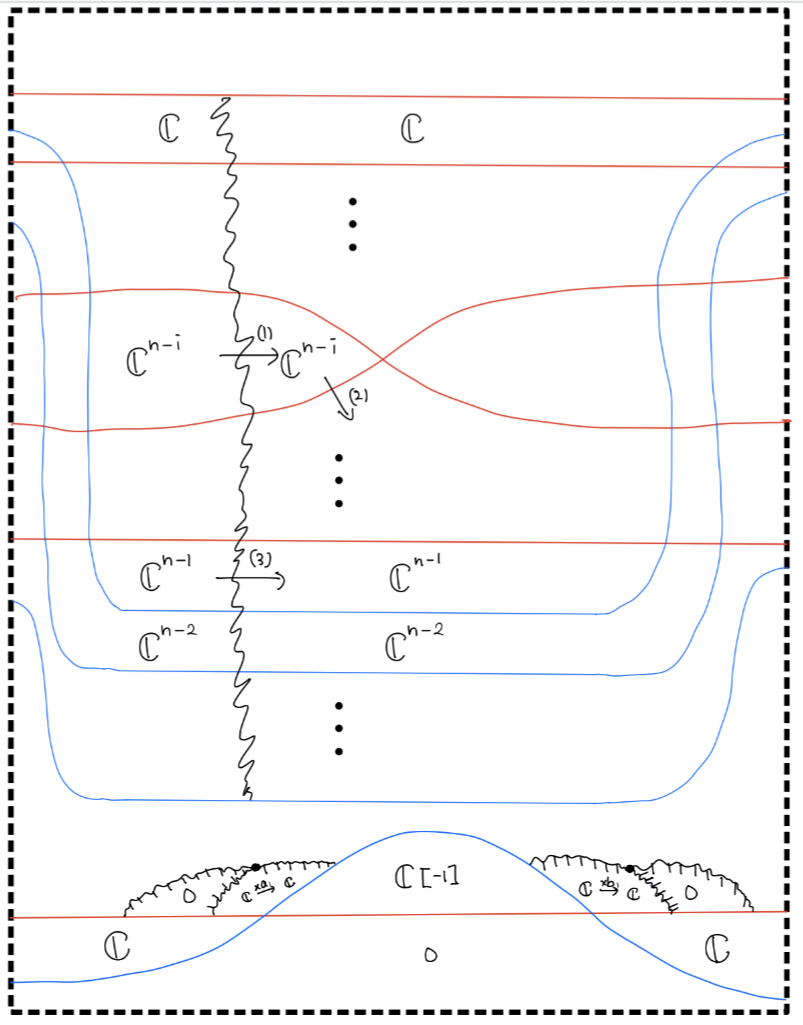 ℂ ℂ
⋮
ℂⁿ⁻ⁱ (1)→ ℂⁿ⁻ⁱ
(2)
⋮
ℂⁿ⁻¹ (3)→ ℂⁿ⁻¹
ℂⁿ⁻² ℂⁿ⁻²
⋮
0 ℂ ×a₁→ ℂ ℂ[-1] ℂ ×b₁→ ℂ 0
ℂ 0 ℂ